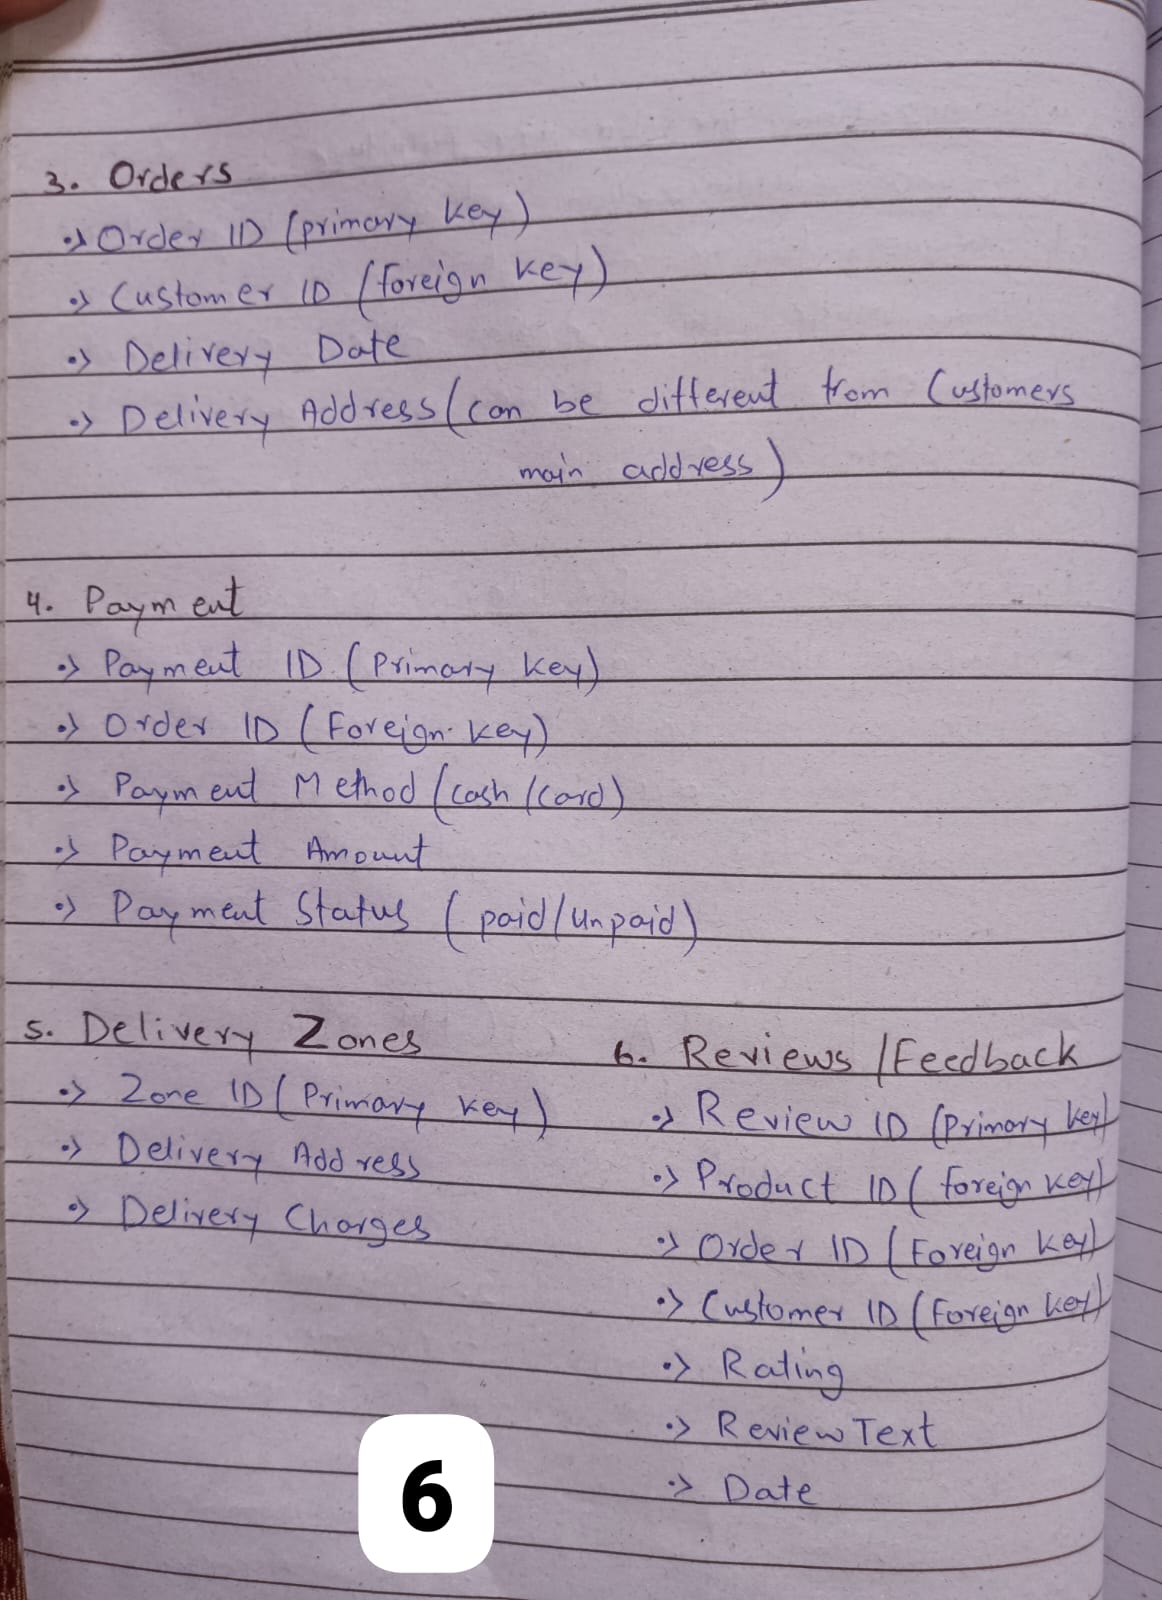 3. Orders
•> Order ID (primary key)
•> Customer ID (foreign key)
•> Delivery Date
•> Delivery Address (can be different from Customers
main address)
4. Payment
•> Payment ID (Primary key)
•> Order ID (Foreign key)
•> Payment Method (cash/card)
•> Payment Amount
•> Payment Status (paid/unpaid)
5. Delivery Zones
•> Zone ID (Primary key)
•> Delivery Address
•> Delivery Charges
6. Reviews/Feedback
•> Review ID (Primary key)
•> Product ID (foreign key)
•> Order ID (Foreign key)
•> Customer ID (Foreign key)
•> Rating
•> Review Text
•> Date
6